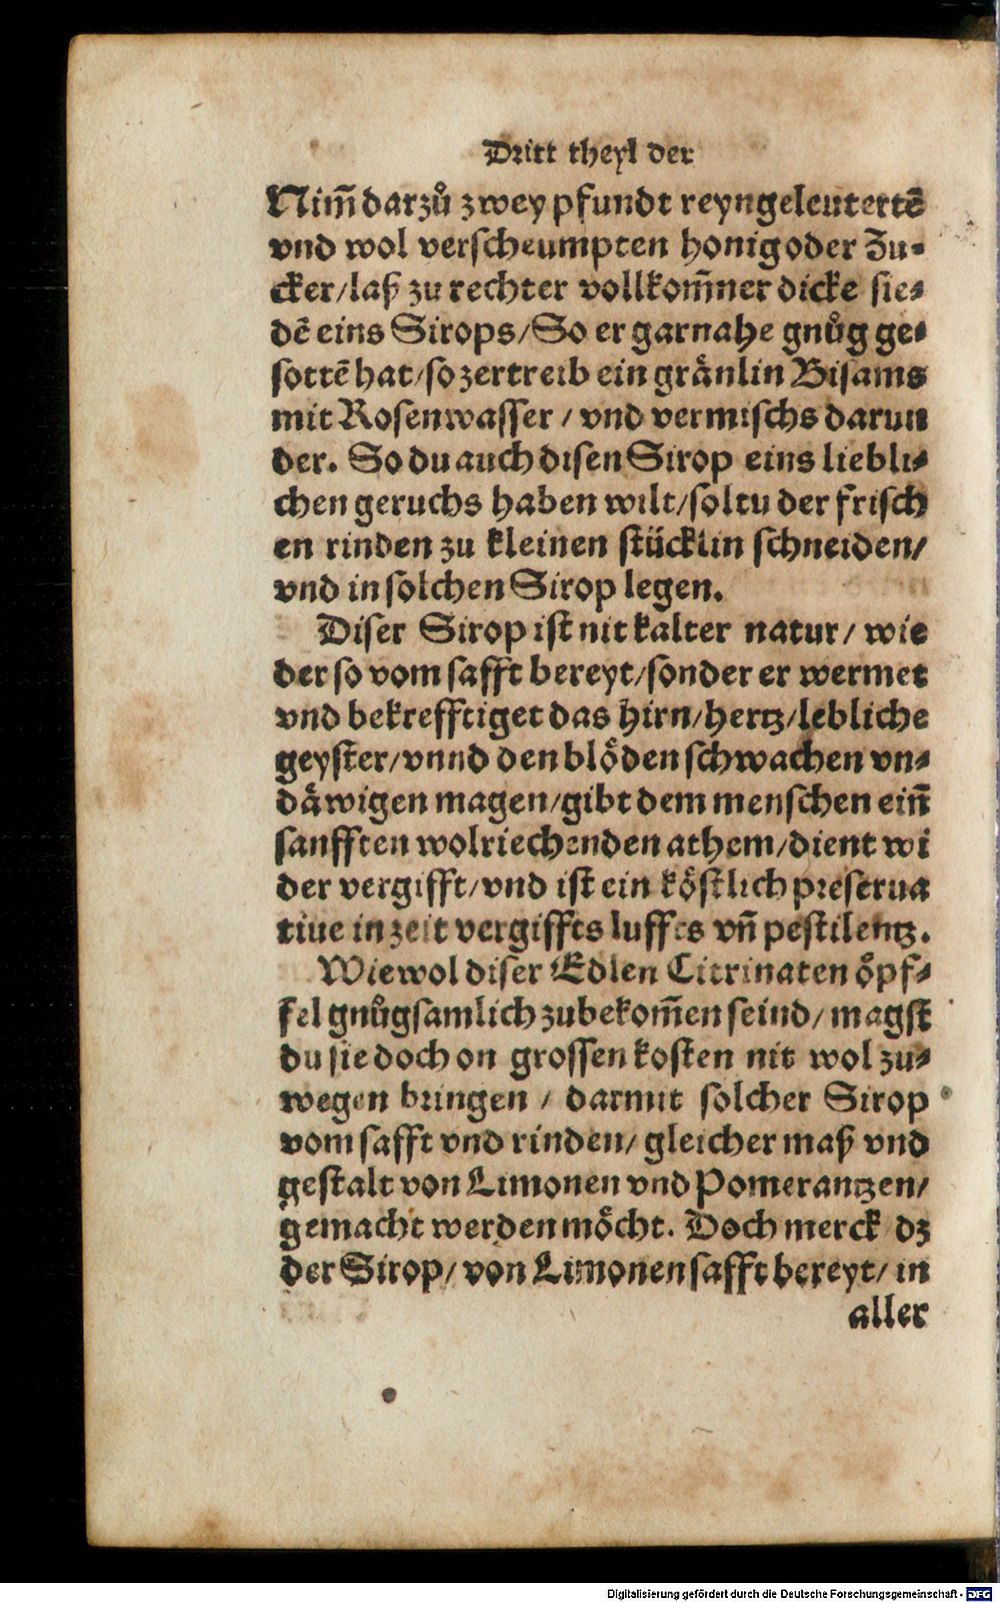 Dritt theyl der
Nim̄ darzů zwey pfundt reyngeleutertē
vnd wol verscheumpten honig oder Zu-
cker/ laß zu rechter vollkom̄ner dicke sie-
dē eins Sirops/ So er garnahe gnůg ge-
sottē hat/ so zertreib ein gränlin Bisams
mit Rosenwasser / vnd vermischs darun
der. So du auch disen Sirop eins liebli-
chen geruchs haben wilt/ soltu der frisch
en rinden zu kleinen stücklin schneiden/
vnd in solchen Sirop legen.
Diser Sirop ist nit kalter natur/ wie
der so vom safft bereyt/ sonder er wermet
vnd bekrefftiget das hirn/ hertz/ lebliche
geyster/ vnnd den blöden schwachen vn-
däwigen magen/ gibt dem menschen ein̄
sanfften wolriechenden athem/ dient wi
der vergifft/ vnd ist ein köstlich preserua
tiue in zeit vergiffts luffts vn̄ pestilentz.
Wiewol diser Edlen Citrinaten öpf-
fel gnůgsamlich zubekom̄en seind/ magst
du sie doch on grossen kosten nit wol zu-
wegen bringen / darmit solcher Sirop
vom safft vnd rinden/ gleicher maß vnd
gestalt von Limonen vnd Pomerantzen/
gemacht werden möcht. Doch merck dz
der Sirop/ von Limonensafft bereyt/ in
aller
Digitalisierung gefördert durch die Deutsche Forschungsgemeinschaft - DFG